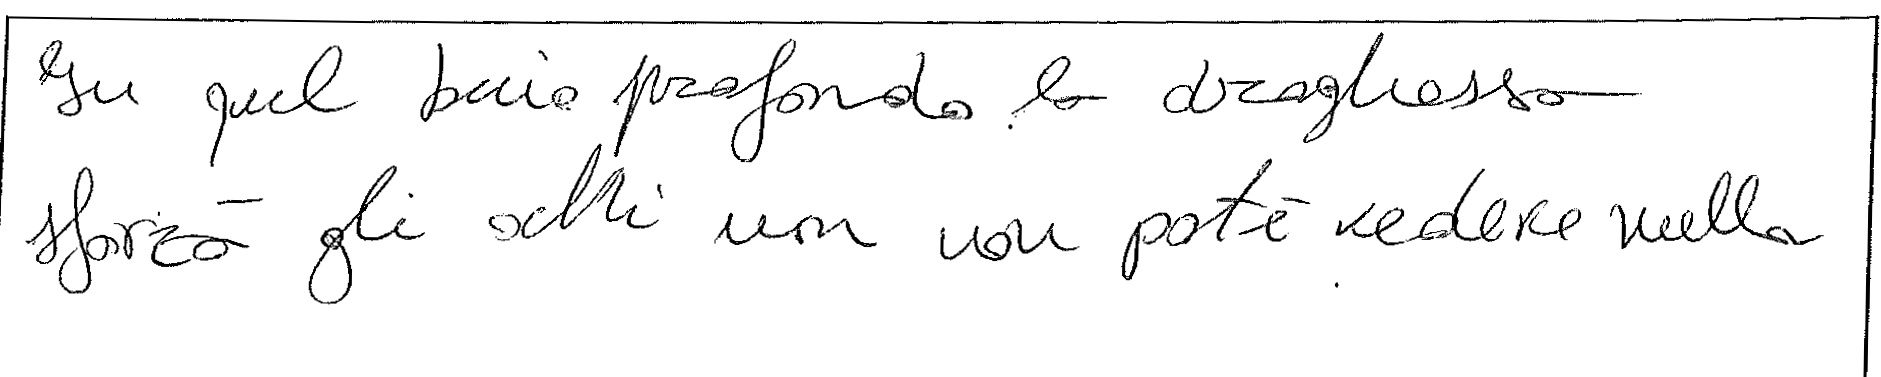 In quel buio profondo la draghessa
sforzò gli occhi non non poté vedere nulla